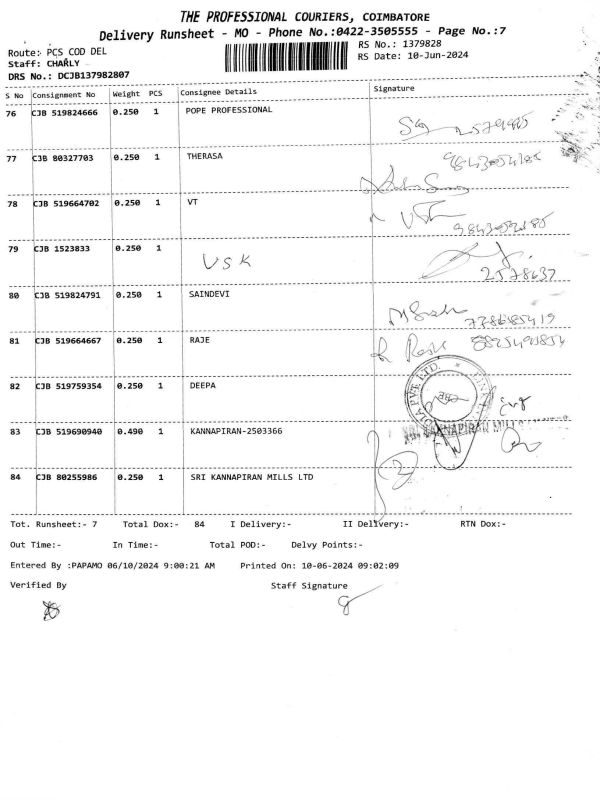 THE PROFESSIONAL COURIERS, COIMBATORE
Delivery Runsheet - MO - Phone No.:0422-3505555 - Page No.:7
Route:- PCS COD DEL
RS No.: 1379828
Staff: CHARLY
RS Date: 10-Jun-2024
DRS No.: DCJB137982807
S No Consignment No Weight PCS Consignee Details Signature
76 CJB 519824666 0.250 1 POPE PROFESSIONAL
77 CJB 80327703 0.250 1 THERASA
78 CJB 519664702 0.250 1 VT
79 CJB 1523833 0.250 1 VSK
2578637
80 CJB 519824791 0.250 1 SAINDEVI
81 CJB 519664667 0.250 1 RAJE
82 CJB 519759354 0.250 1 DEEPA
83 CJB 519690940 0.490 1 KANNAPIRAN-2503366
84 CJB 80255986 0.250 1 SRI KANNAPIRAN MILLS LTD
Tot. Runsheet:- 7 Total Dox:- 84 I Delivery:- II Delivery:- RTN Dox:-
Out Time:- In Time:- Total POD:- Delvy Points:-
Entered By :PAPAMO 06/10/2024 9:00:21 AM Printed On: 10-06-2024 09:02:09
Verified By Staff Signature